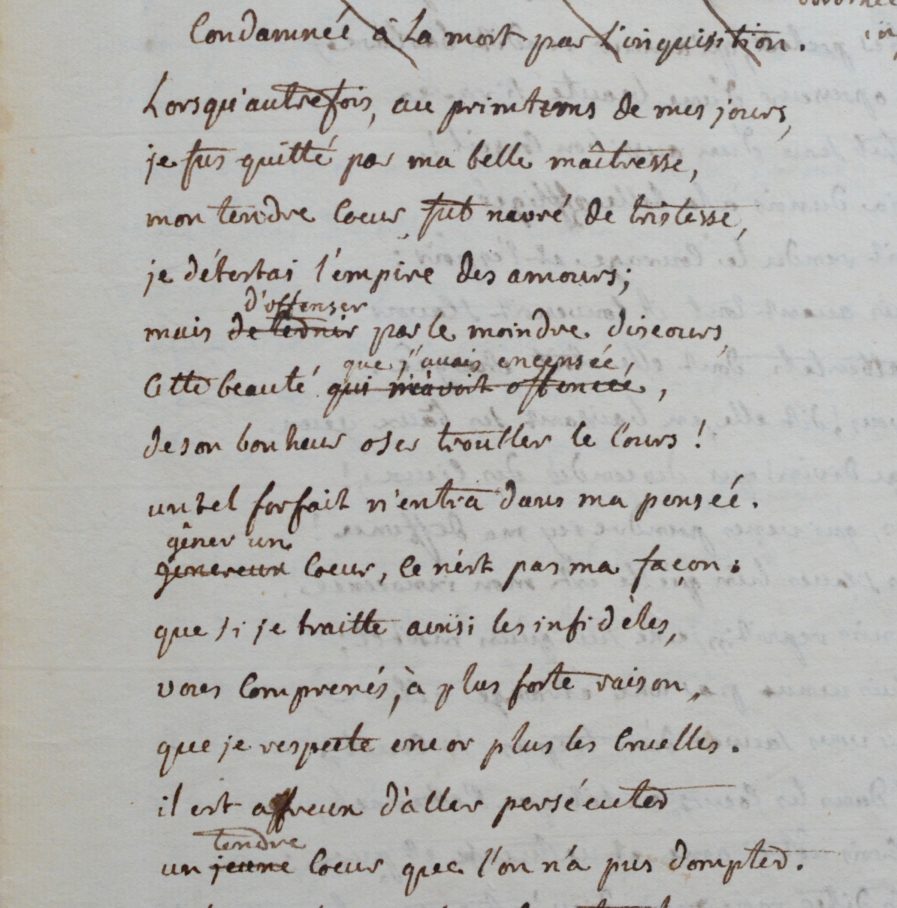 Condamnée à La mort par L'inquisition.
Lorsqu'autrefois, au printems de mes jours,
je fus quitté par ma belle maîtresse,
mon tendre Coeur fut navré de tristesse,
je détestai l'empire des amours;
d'offenser
mais de ternir par le moindre discours
que j'avais encensée,
Cette beauté qui m'avoit offencée,
de son bonheur oser troubler le Cours!
un tel forfait n'entra dans ma pensée.
gêner un
genereux Coeur, Ce n'est pas ma façon.
que si je traitte ainsi les infidèles,
vous Comprenés, à plus forte raison,
que je respecte encor plus les Cruelles.
il est affreux d'aller persécuter
tendre
un jeune Coeur que l'on n'a pus dompter.